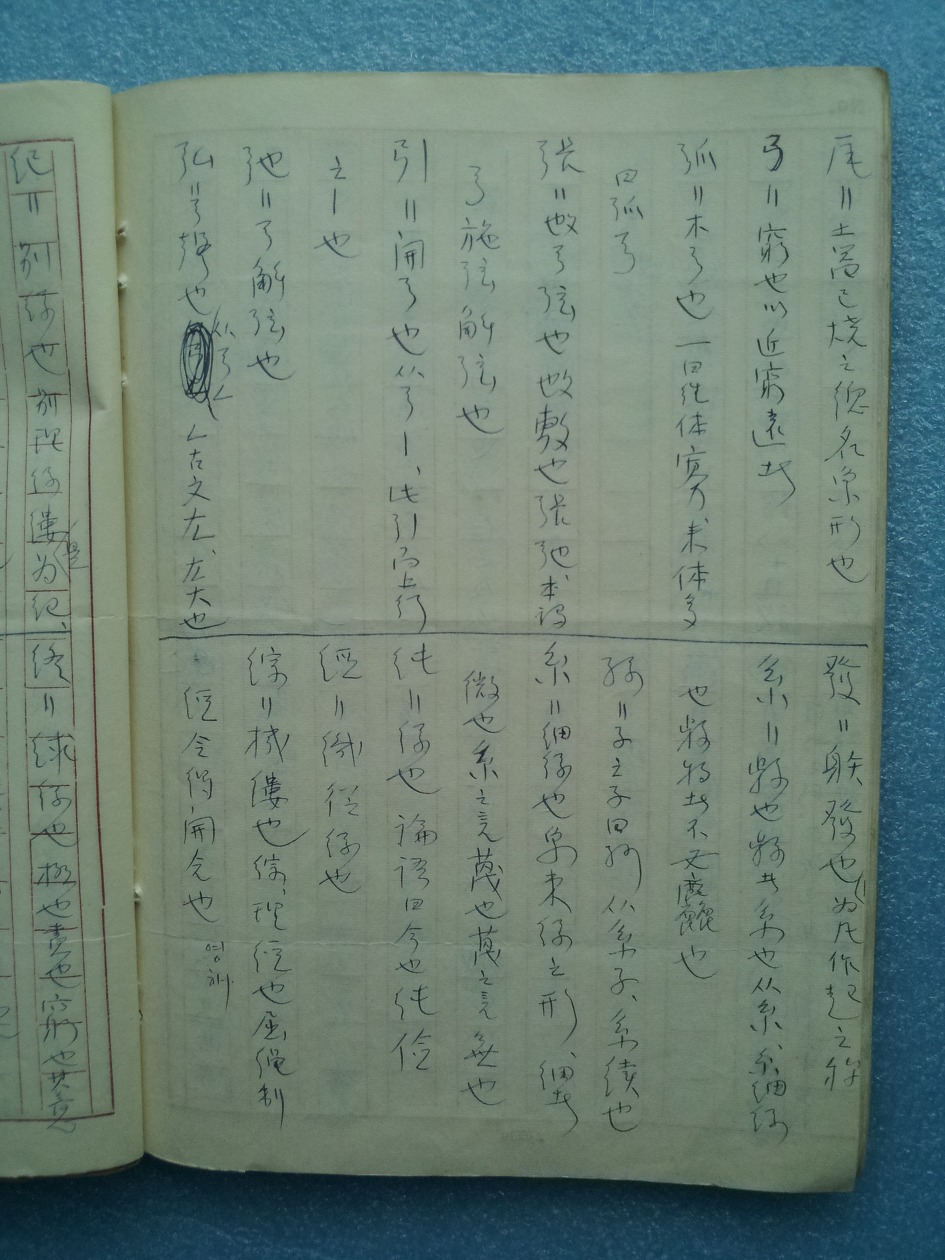 瓦〃土器已烧之總名象形也
弓〃窮也以近窮遠者
弧〃木弓也一曰往体寡来体多
曰弧弓
張〃施弓弦也施敷也張弛本謂
弓施弦解弦也
引〃開弓也从弓丨、此引而上行
之丨也
弛〃弓解弦也
弘〃弓聲也从弓厶厶古文左、左大也
發〃躲發也引为凡作起之稱
系〃縣也縣者系也从糸、糸細絲
也縣物者不必麤也
孫〃子之子曰孙从系子、系續也
糸〃細絲也象束絲之形、細者
微也糸之言蔑也蔑之言無也
純〃絲也論語曰今也純儉
經〃織從絲也
綜〃機縷也綜、理經也屈繩制
經令得開合也
紀〃别絲也别理絲縷为紀、
終〃絿絲也極也責也窮也其意